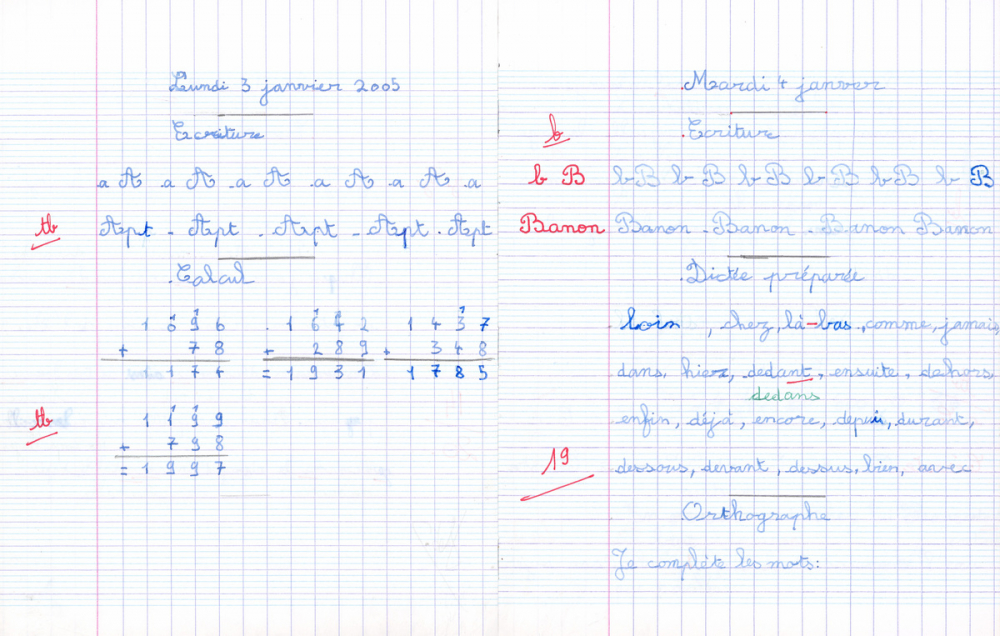 Lundi 3 janvier 2005
Ecriture
a A a A a A a A a A a
tb
Apt - Apt - Apt - Apt - Apt
Calcul
1 6 9 6 1 6 4 2 1 4 3 7
+ 7 8 + 2 8 9 + 3 4 8
1 7 4 = 1 9 3 1 1 7 8 5
tb
1 1 9 9
+ 7 9 8
= 1 9 9 7
Mardi 4 janvier
b
Ecriture
b B b B b B b B b B b B b B
Banon Banon - Banon - Banon Banon
Dictée préparée
loin, chez, là-bas, comme, jamais
dans, hier, dedant, ensuite, dehors,
dedans
enfin, déjà, encore, depuis, durant,
19
dessous, devant, dessus, bien, avec
Orthographe
Je complète les mots: